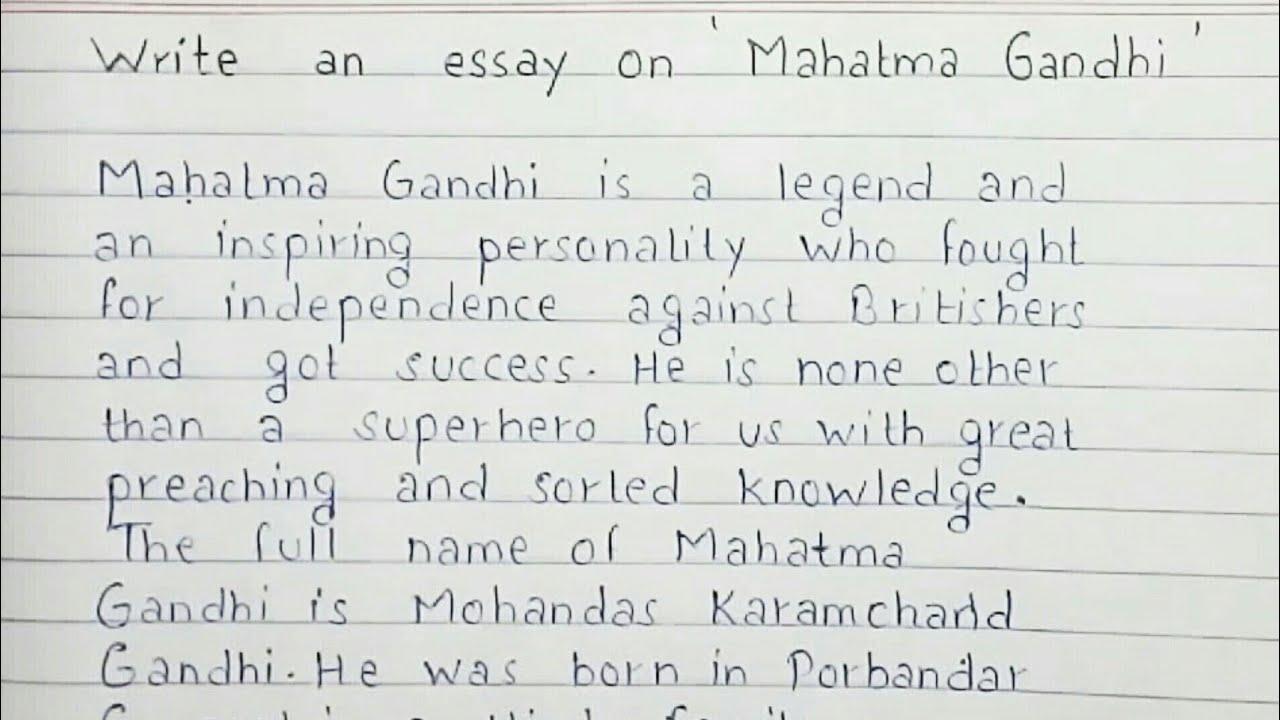 Write an essay on 'Mahatma Gandhi'
Mahatma Gandhi is a legend and
an inspiring personality who fought
for independence against Britishers
and got success. He is none other
than a superhero for us with great
preaching and sorted knowledge.
The full name of Mahatma
Gandhi is Mohandas Karamchand
Gandhi. He was born in Porbandar